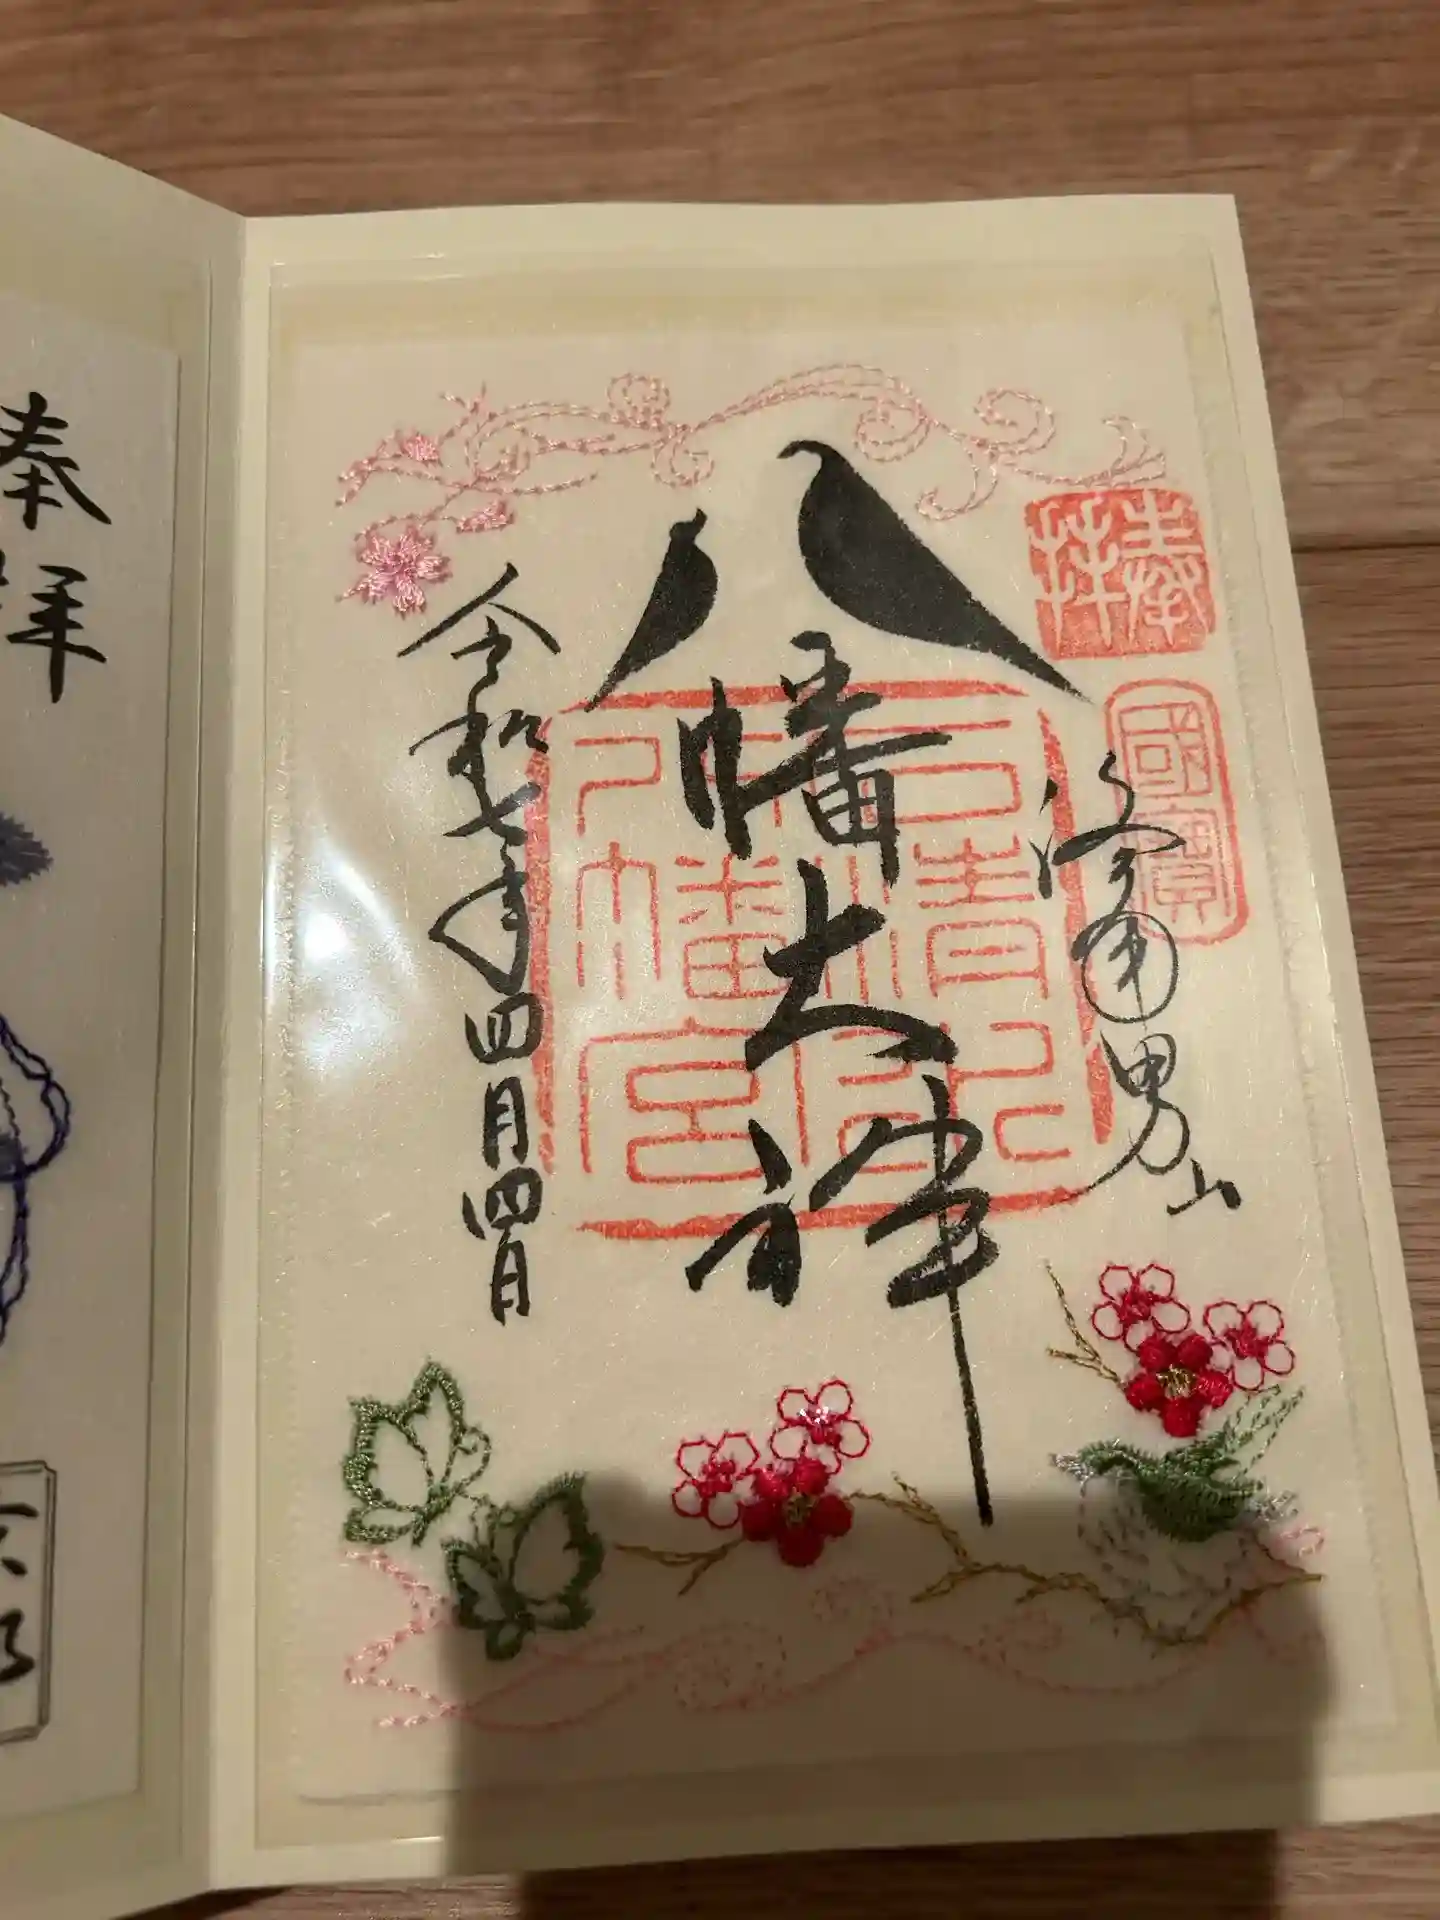 奉拝
國寶
洛南男山
八幡大神
石清水八幡宮
令和七年四月四日
奉
拝